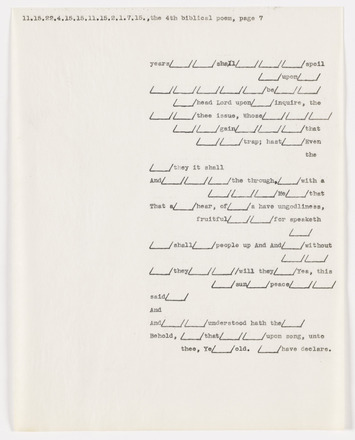 11.15.22.4.15.15.11.15.2.1.7.15.,the 4th biblical poem, page 7
years/____/____/shall/____/____/____/spoil
/____/upon/____/
/____/____/____/____/____/be/____/____/
/____/head Lord upon/____/inquire, the
/____/____/thee issue, whose/____/____/____/
/____/____/gain/____/____/____/that
/____/____/trap; hast/____/Even
the
/____/they it shall
And/____/____/____/the through,/____/with a
/____/____/____/Me/____/that
That a/____/hear, of/____/a have ungodliness,
fruitful/____/____/for speaketh
/____/
/____/shall/____/people up And And/____/without
/____/____/
/____/they/____/____//will they/____/Yea, this
/____/sun/____/peace/____/____/
said/____/
And
And/____/____/understood hath the/____/
Behold, /____/that/____/____/upon song, unto
thee, Ye/____/old. /____/have declare.